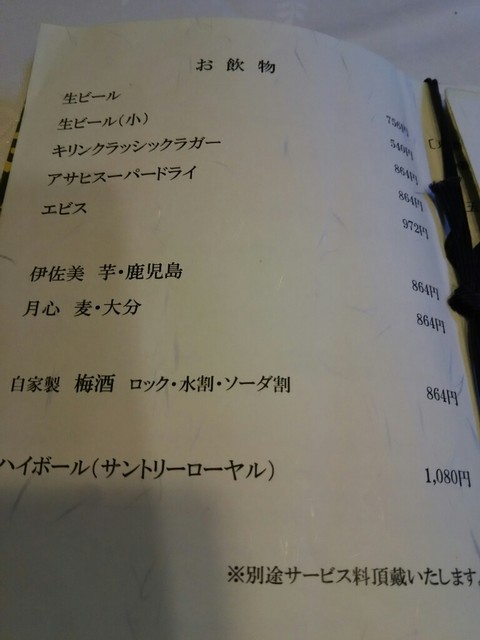 お飲物
生ビール 756円
生ビール(小) 540円
キリンクラッシックラガー 864円
アサヒスーパードライ 864円
エビス 972円
伊佐美 芋・鹿児島 864円
月心 麦・大分 864円
自家製 梅酒 ロック・水割・ソーダ割 864円
ハイボール(サントリーローヤル) 1,080円
※別途サービス料頂戴いたします。